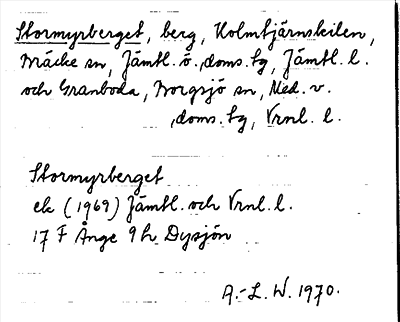 Stormyrberget, berg, Holmtjärnskilen,
Bräcke sn, Jämtl. ö. doms. tg, Jämtl. l.
och Granboda, Borgsjö sn, Med. v.
,doms. tg, Vrnl. l.
Stormyrberget
ek (1969) Jämtl. och Vrnl. l.
17 F Ånge 9 h Dysjön
A.-L. W. 1970.